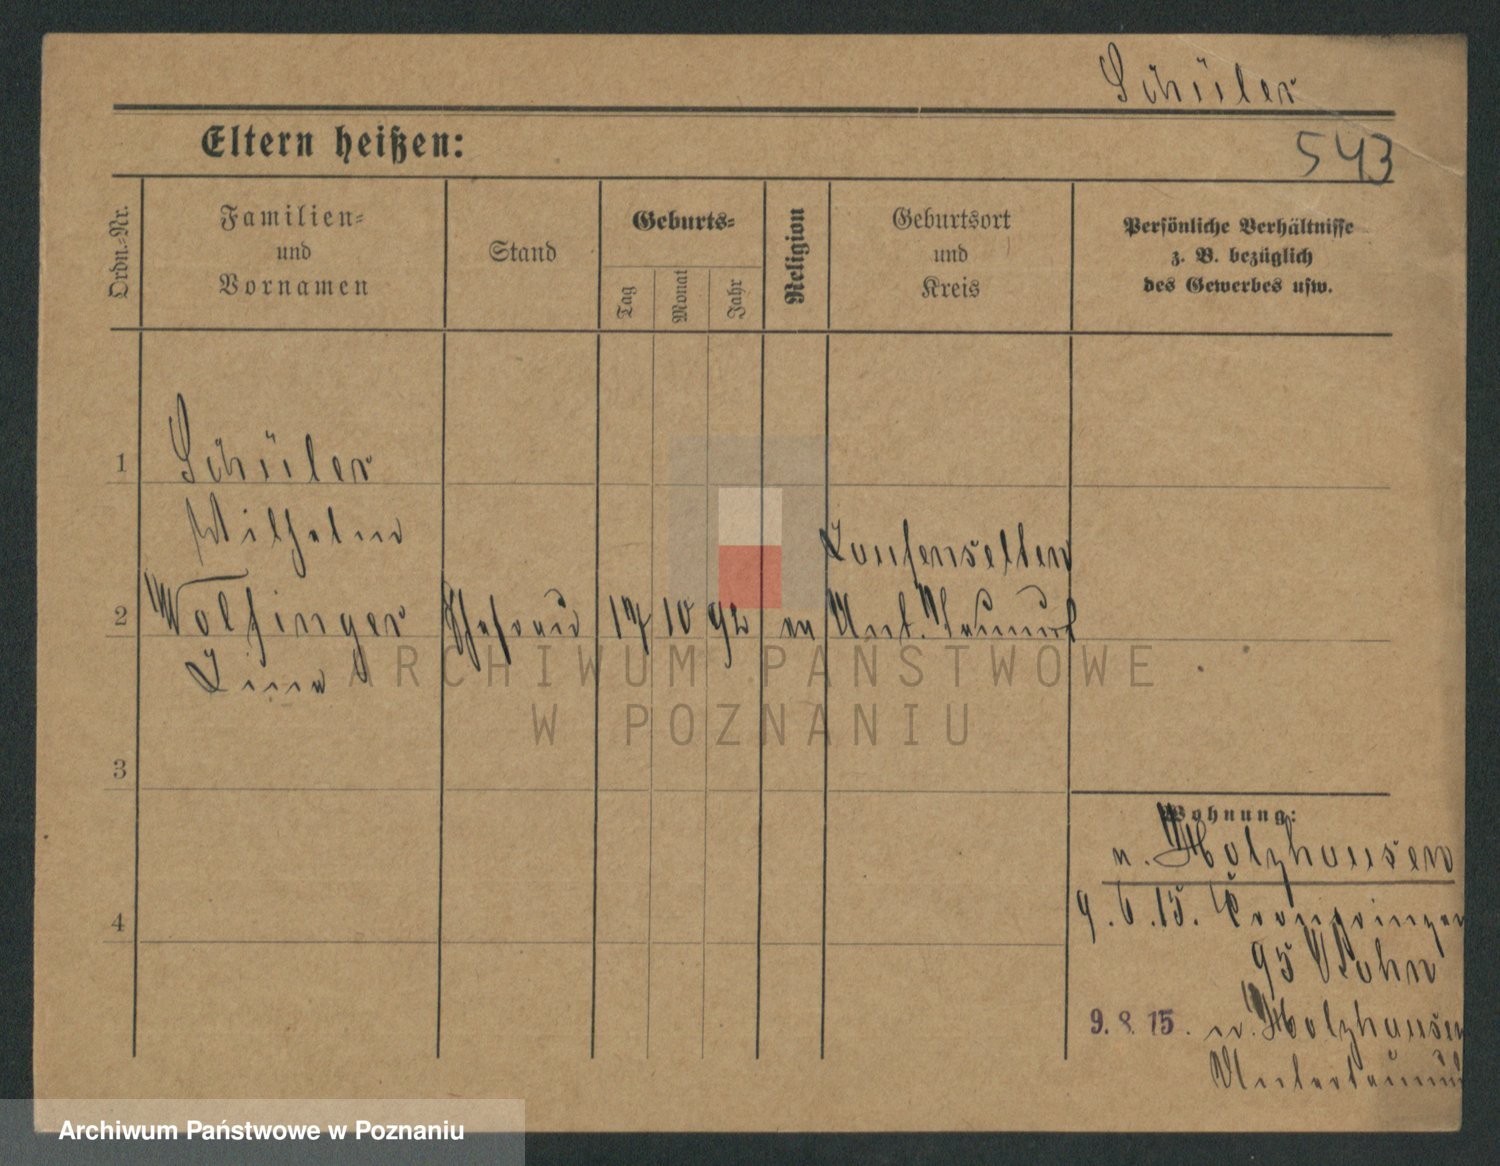 Schüler
Eltern heißen:
543
Ordn.-Nr.
Familien-
und
Vornamen
Stand
Geburts-
Tag
Monat
Jahr
Religion
Geburtsort
und
Kreis
Persönliche Verhältnisse
z. B. bezüglich
des Gewerbes usw.
1
Schüler
Wilhelm
2
Wolfinger
Ehefrau
17
10
92
ev
Laufenselden
Unt. Taunus
Lina
ARCHIWUM PAŃSTWOWE
W POZNANIU
3
4
Wohnung:
n. Holzhausen
9.6.15. Kronprinzen
95 Rohn
9.8.15. n. Holzhausen
Untertaunus
Archiwum Państwowe w Poznaniu